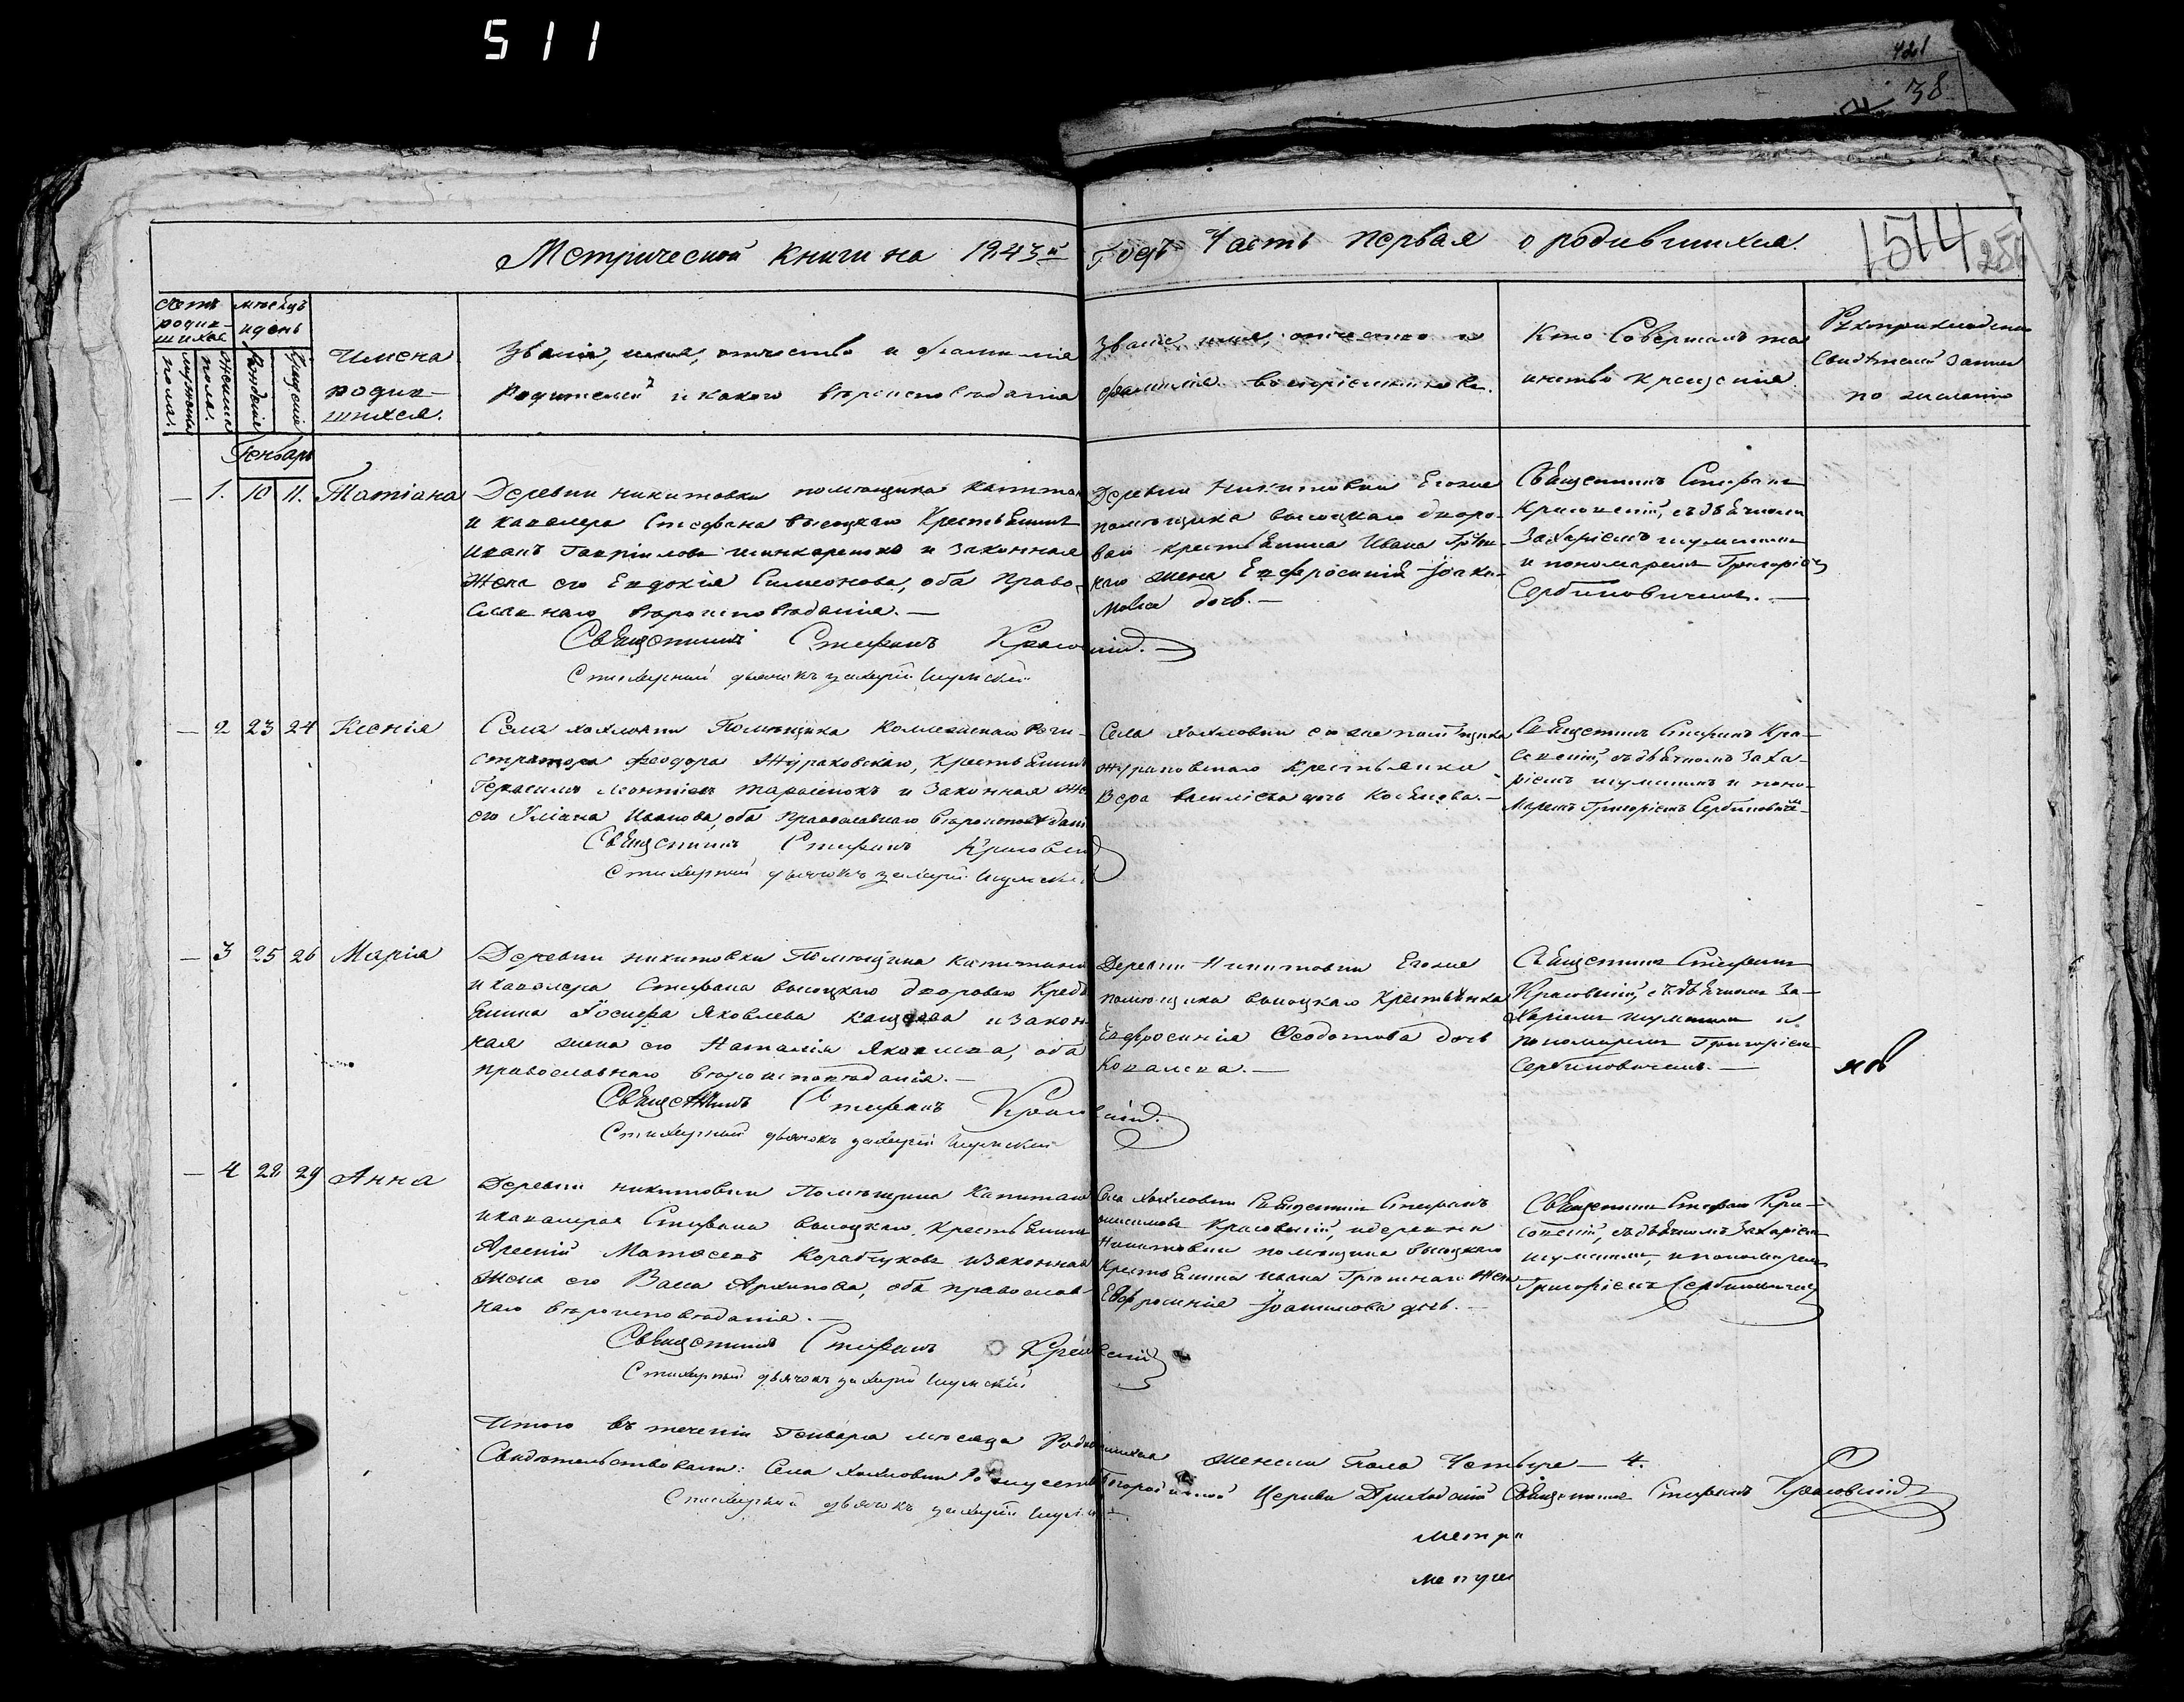 511
421
38
Метрической книги на 1843й Годъ Часть первая о родившихся.
1514 256
Счетъ родив-шихся
мѣсяцъ и день
мужеска пола.
женска пола.
Рожденія
Крещенія
Имена
родив-
шихся.
Званіе, имя, отчество и фамилія
Родителей и какого вѣроисповѣданія
Званіе, имя, отчество и
фамилія воспріемниковъ.
Кто Совершалъ та
инство крещенія
Рукоприкладство
Свидѣтелей записи
по желанію
Генварь
— 1. 10 11. Татіана
Деревни никитовки помѣщика капитана
и кавалера Стефана высоцкаго Крестьянинъ
Иванъ Гавріиловъ шинкаренко и законная
Жена его Евдокія Симеонова, оба Право-
славнаго вѣроисповѣданія. —
Деревни Никитовки Егоже
помѣщика высоцкаго дворо-
ваго крестьянина Ивана
жена Евфросинія Іоаки-
мова дочь. —
Священникъ Стефанъ
Красовскій, съ дьячкомъ
Захаріемъ шумскимъ
и пономаремъ Григоріемъ
Сербиновичемъ. —
Священникъ Стефанъ Красовскій.
Стихарный дьячокъ захарій Шумскій
— 2 23 24 Ксенія
Села хохловки Помѣщика Коллежскаго Реги-
стратора Феодора Жураковскаго, Крестьянинъ
Герасимъ Леонтіевъ тарасенокъ и Законная Же
его Уліана Иванова, оба Православнаго вѣроисповѣдані
Села хохловки того же помѣщика
Жураковскаго крестьянка
Вера василіева дочь —
Священникъ Стефанъ Кра-
совскій, съ дьячкомъ Заха-
ріемъ шумскимъ и поно-
маремъ Григоріемъ Сербиновиче-
Священникъ Стефанъ Красовскій
Стихарный дьячокъ захарій Шумскій
— 3 25 26 Марія
Деревни никитовки Помѣщика капитана
и кавалера Стефана высоцкаго двороваго Кресть
янина Іосифа Яковлева и Закон-
ная жена его Наталія Яковлева, оба
православнаго вѣроисповѣданія. —
Деревни Никитовки Егоже
помѣщика высоцкаго Крестьянка
Евфросинія Феодотова дочь
Ковалева. —
Священникъ Стефанъ
Красовскій, съ дьячкомъ За-
харіемъ шумскимъ и
пономаремъ Григоріемъ
Сербиновичемъ. —
Священникъ Стефанъ Красовскій.
Стихарный дьячокъ захарій Шумскій
— 4 28 29 Анна
Деревни никитовки Помѣщика Капитана
и кавалера Стефана высоцкаго, Крестьянинъ
Арсеній Матвеевъ Корабчуковъ и Законная
Жена его Васа Архипова, оба православ
наго вѣроисповѣданія. —
Села Хохловки Священникъ Стефанъ
Красовскій, и деревни
Никитовки помѣщика высоцкаго
Крестьянина ивана жена
Евфросинія Іоакимова дочь. —
Священникъ Стефанъ Кра-
совскій, съ дьячкомъ Захаріемъ
шумскимъ, и пономаремъ
Григоріемъ Сербиновичемъ
Священникъ Стефанъ Красовскій
Стихарный дьячокъ захарій Шумскій
Итого въ теченіи Генваря мѣсяца Родившихся женска Пола Четыре — 4.
Свидѣтельствовали: Села Хохловки Рождество Богородичной Церкви Приходскій Священникъ Стефанъ Красовскій
Стихарный дьячокъ захарій Шумскій
Метри